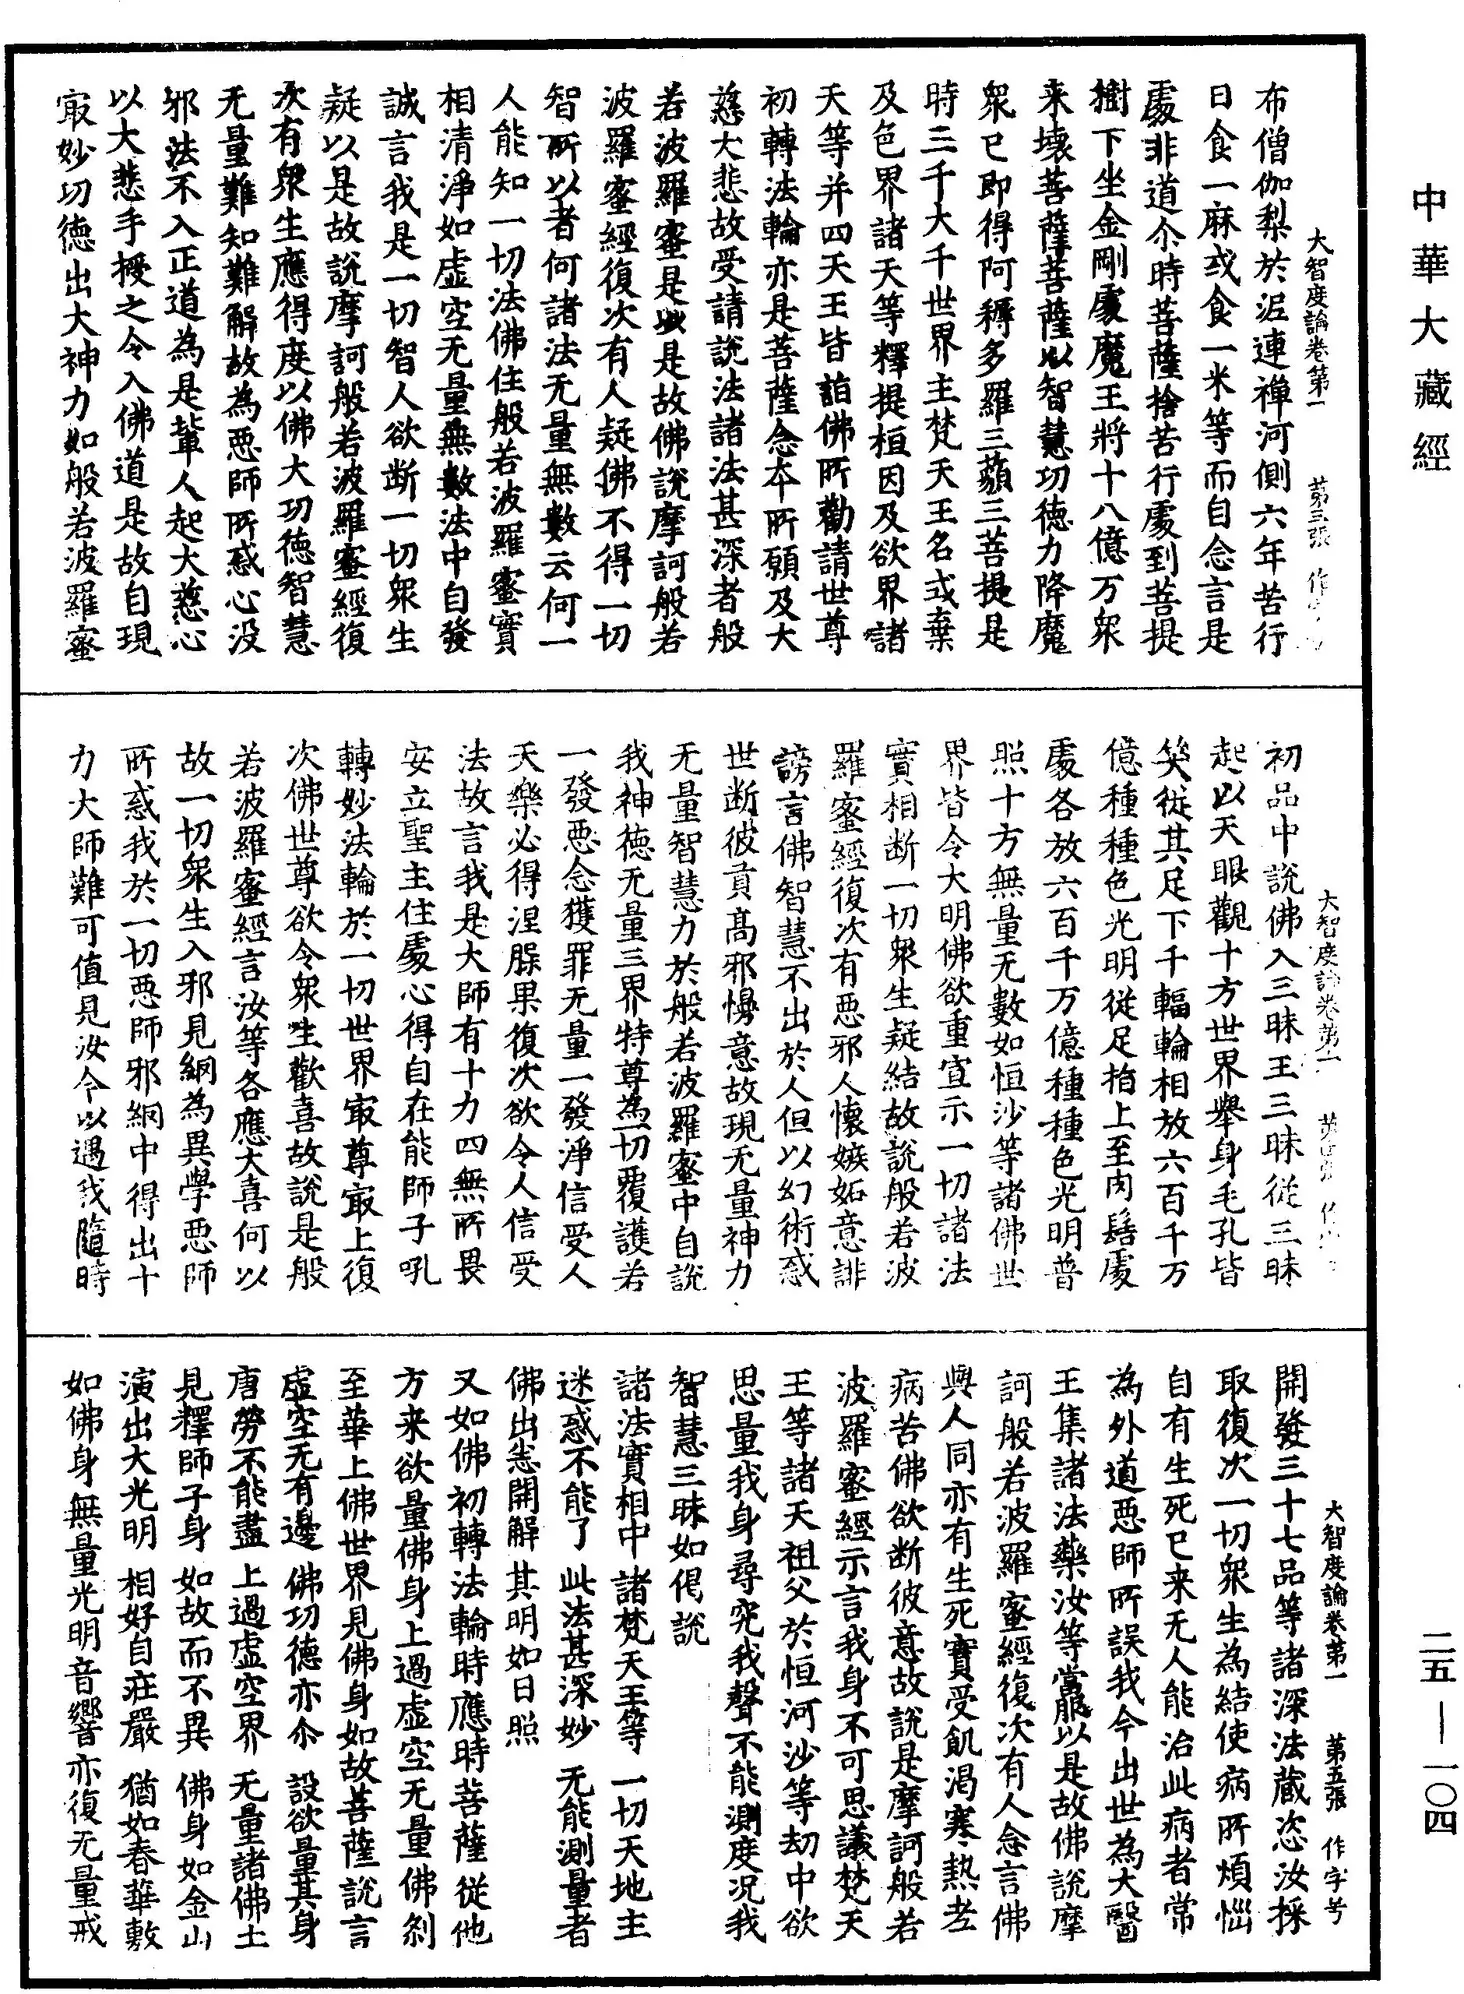 中華大藏經
大智度論卷第一 第三張 作
布僧伽梨於泥連禪河側六年苦行
日食一麻或食一米等而自念言是
處非道尒時菩薩捨苦行處到菩提
樹下坐金剛處魔王將十八億万衆
来壞菩薩菩薩以智慧功德力降魔
衆已即得阿耨多羅三藐三菩提是
時三千大千世界主梵天王名式棄
及色界諸天等釋提桓因及欲界諸
天等并四天王皆詣佛所勸請世尊
初轉法輪亦是菩薩念本所願及大
慈大悲故受請說法諸法甚深者般
若波羅蜜是以是故佛說摩訶般若
波羅蜜經復次有人疑佛不得一切
智所以者何諸法无量無數云何一
人能知一切法佛住般若波羅蜜實
相清淨如虛空无量無數法中自發
誠言我是一切智人欲断一切衆生
疑以是故說摩訶般若波羅蜜經復
次有衆生應得度以佛大功德智慧
无量難知難解故為惡師所惑心没
邪法不入正道為是輩人起大慈心
以大悲手授之令入佛道是故自現
㝡妙功德出大神力如般若波羅蜜
大智度論卷第一
初品中說佛入三昧王三昧從三昧
起以天眼觀十方世界舉身毛孔皆
笑從其足下千輻輪相放六百千万
億種種色光明從足指上至肉髻處
處各放六百千万億種種色光明普
照十方無量无數如恒沙等諸佛世
界皆令大明佛欲重宣示一切諸法
實相断一切衆生疑結故說般若波
羅蜜經復次有惡邪人懷嫉妬意誹
謗言佛智慧不出於人但以幻術惑
世断彼貢髙邪慢意故現无量神力
无量智慧力於般若波羅蜜中自說
我神德无量三界特尊為一切覆護若
一發惡念獲罪无量一發淨信受人
天樂必得涅槃果復次欲令人信受
法故言我是大師有十力四無所畏
安立聖主住處心得自在能師子吼
轉妙法輪於一切世界㝡尊㝡上復
次佛世尊欲令衆生歡喜故說是般
若波羅蜜經言汝等各應大喜何以
故一切衆生入邪見網為異學惡師
所惑我於一切惡師邪網中得出十
力大師難可值見汝今以遇我隨時
大智度論卷第一 第五張 作字号
開發三十七品等諸深法藏恣汝採
取復次一切衆生為結使病所煩惱
自有生死已来无人能治此病者常
為外道惡師所誤我今出世為大醫
王集諸法藥汝等當服以是故佛說摩
訶般若波羅蜜經復次有人念言佛
與人同亦有生死實受飢渴寒熱老
病苦佛欲断彼意故說是摩訶般若
波羅蜜經示言我身不可思議梵天
王等諸天祖父於恒河沙等劫中欲
思量我身尋究我聲不能測度况我
智慧三昧如偈說
諸法實相中 諸梵天王等 一切天地主
迷惑不能了 此法甚深妙 无能測量者
佛出悉開解 其明如日照
又如佛初轉法輪時應時菩薩從他
方来欲量佛身上過虛空无量佛剎
至華上佛世界見佛身如故菩薩說言
虛空无有邊 佛功德亦尒 設欲量其身
唐勞不能盡 上過虛空界 无量諸佛土
見釋師子身 如故而不異 佛身如金山
演出大光明 相好自莊嚴 猶如春華敷
如佛身無量光明音響亦復无量戒
二五—一〇四